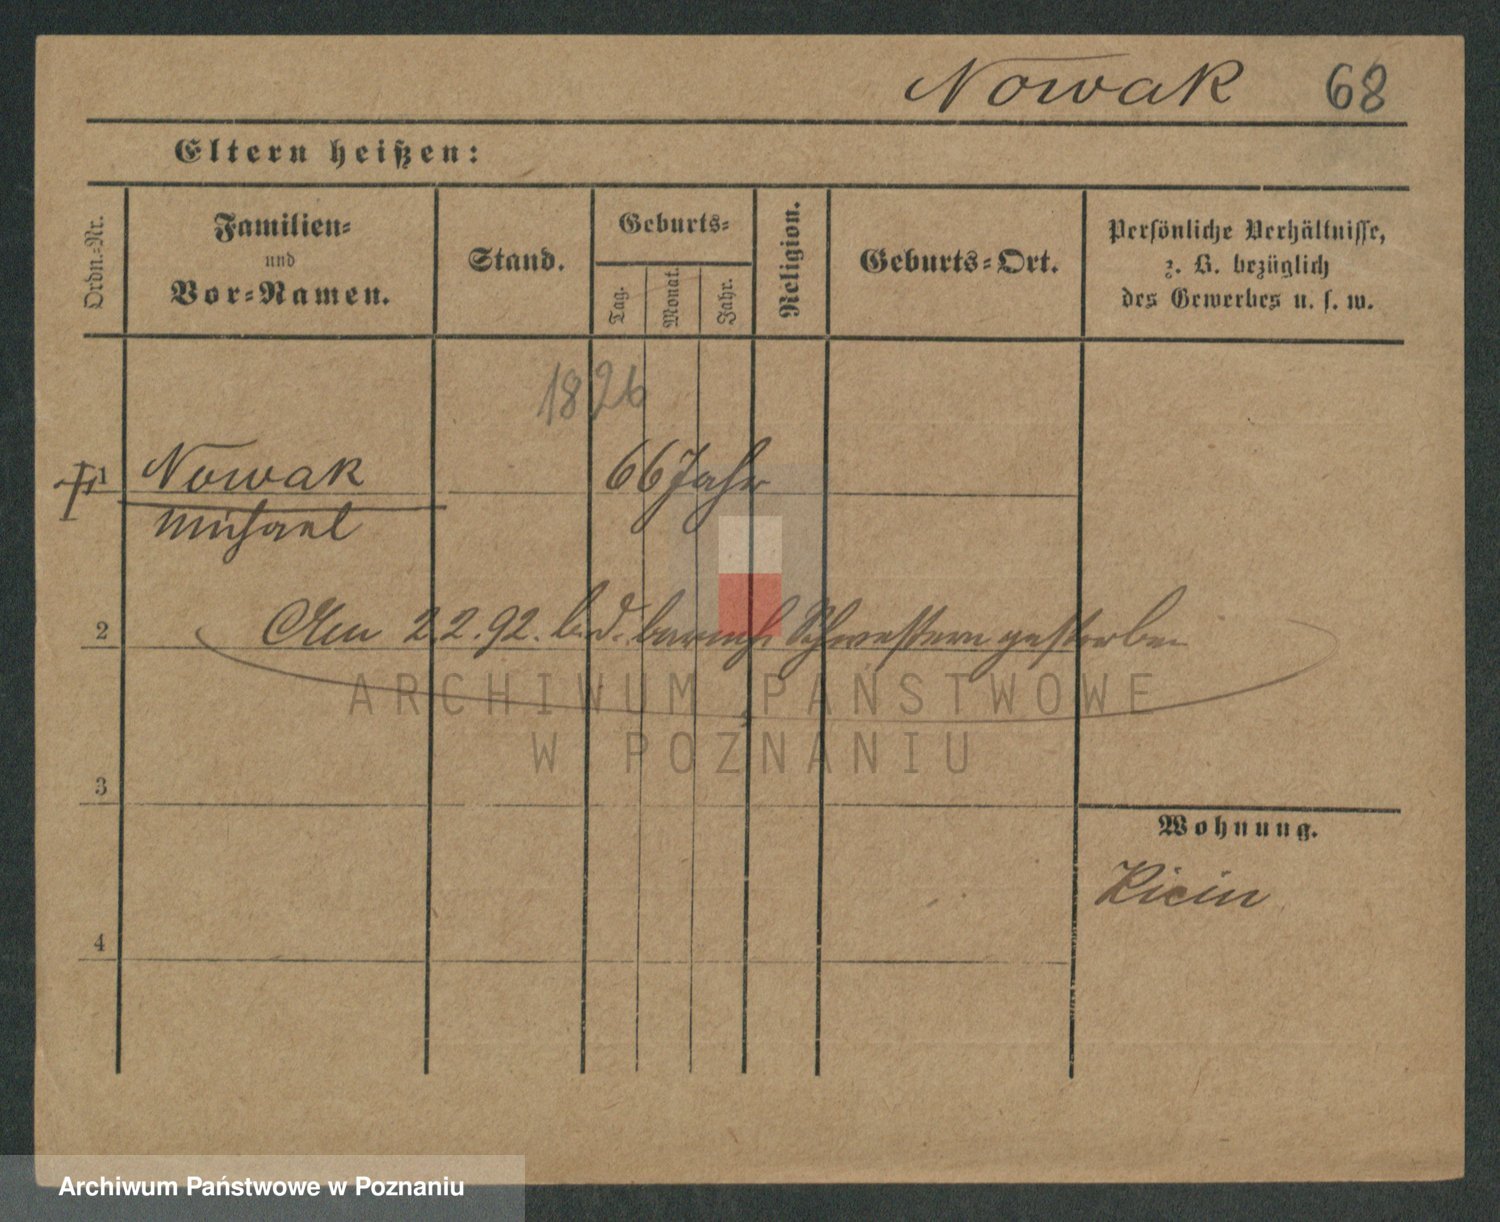 Nowak 68
Eltern heißen:
Ordn.-Nr.
Familien-
und
Vor-Namen.
Stand.
Geburts-
Tag.
Monat.
Jahr.
Religion.
Geburts-Ort.
Persönliche Verhältnisse,
z. B. bezüglich
des Gewerbes u. s. w.
1826
1 Nowak 66 Jahr
Michael
2 Am 2.2.92. b. d. barmh. Schwestern gestorben
ARCHIWUM PAŃSTWOWE
W POZNANIU
3
Wohnung.
Kicin
4
Archiwum Państwowe w Poznaniu